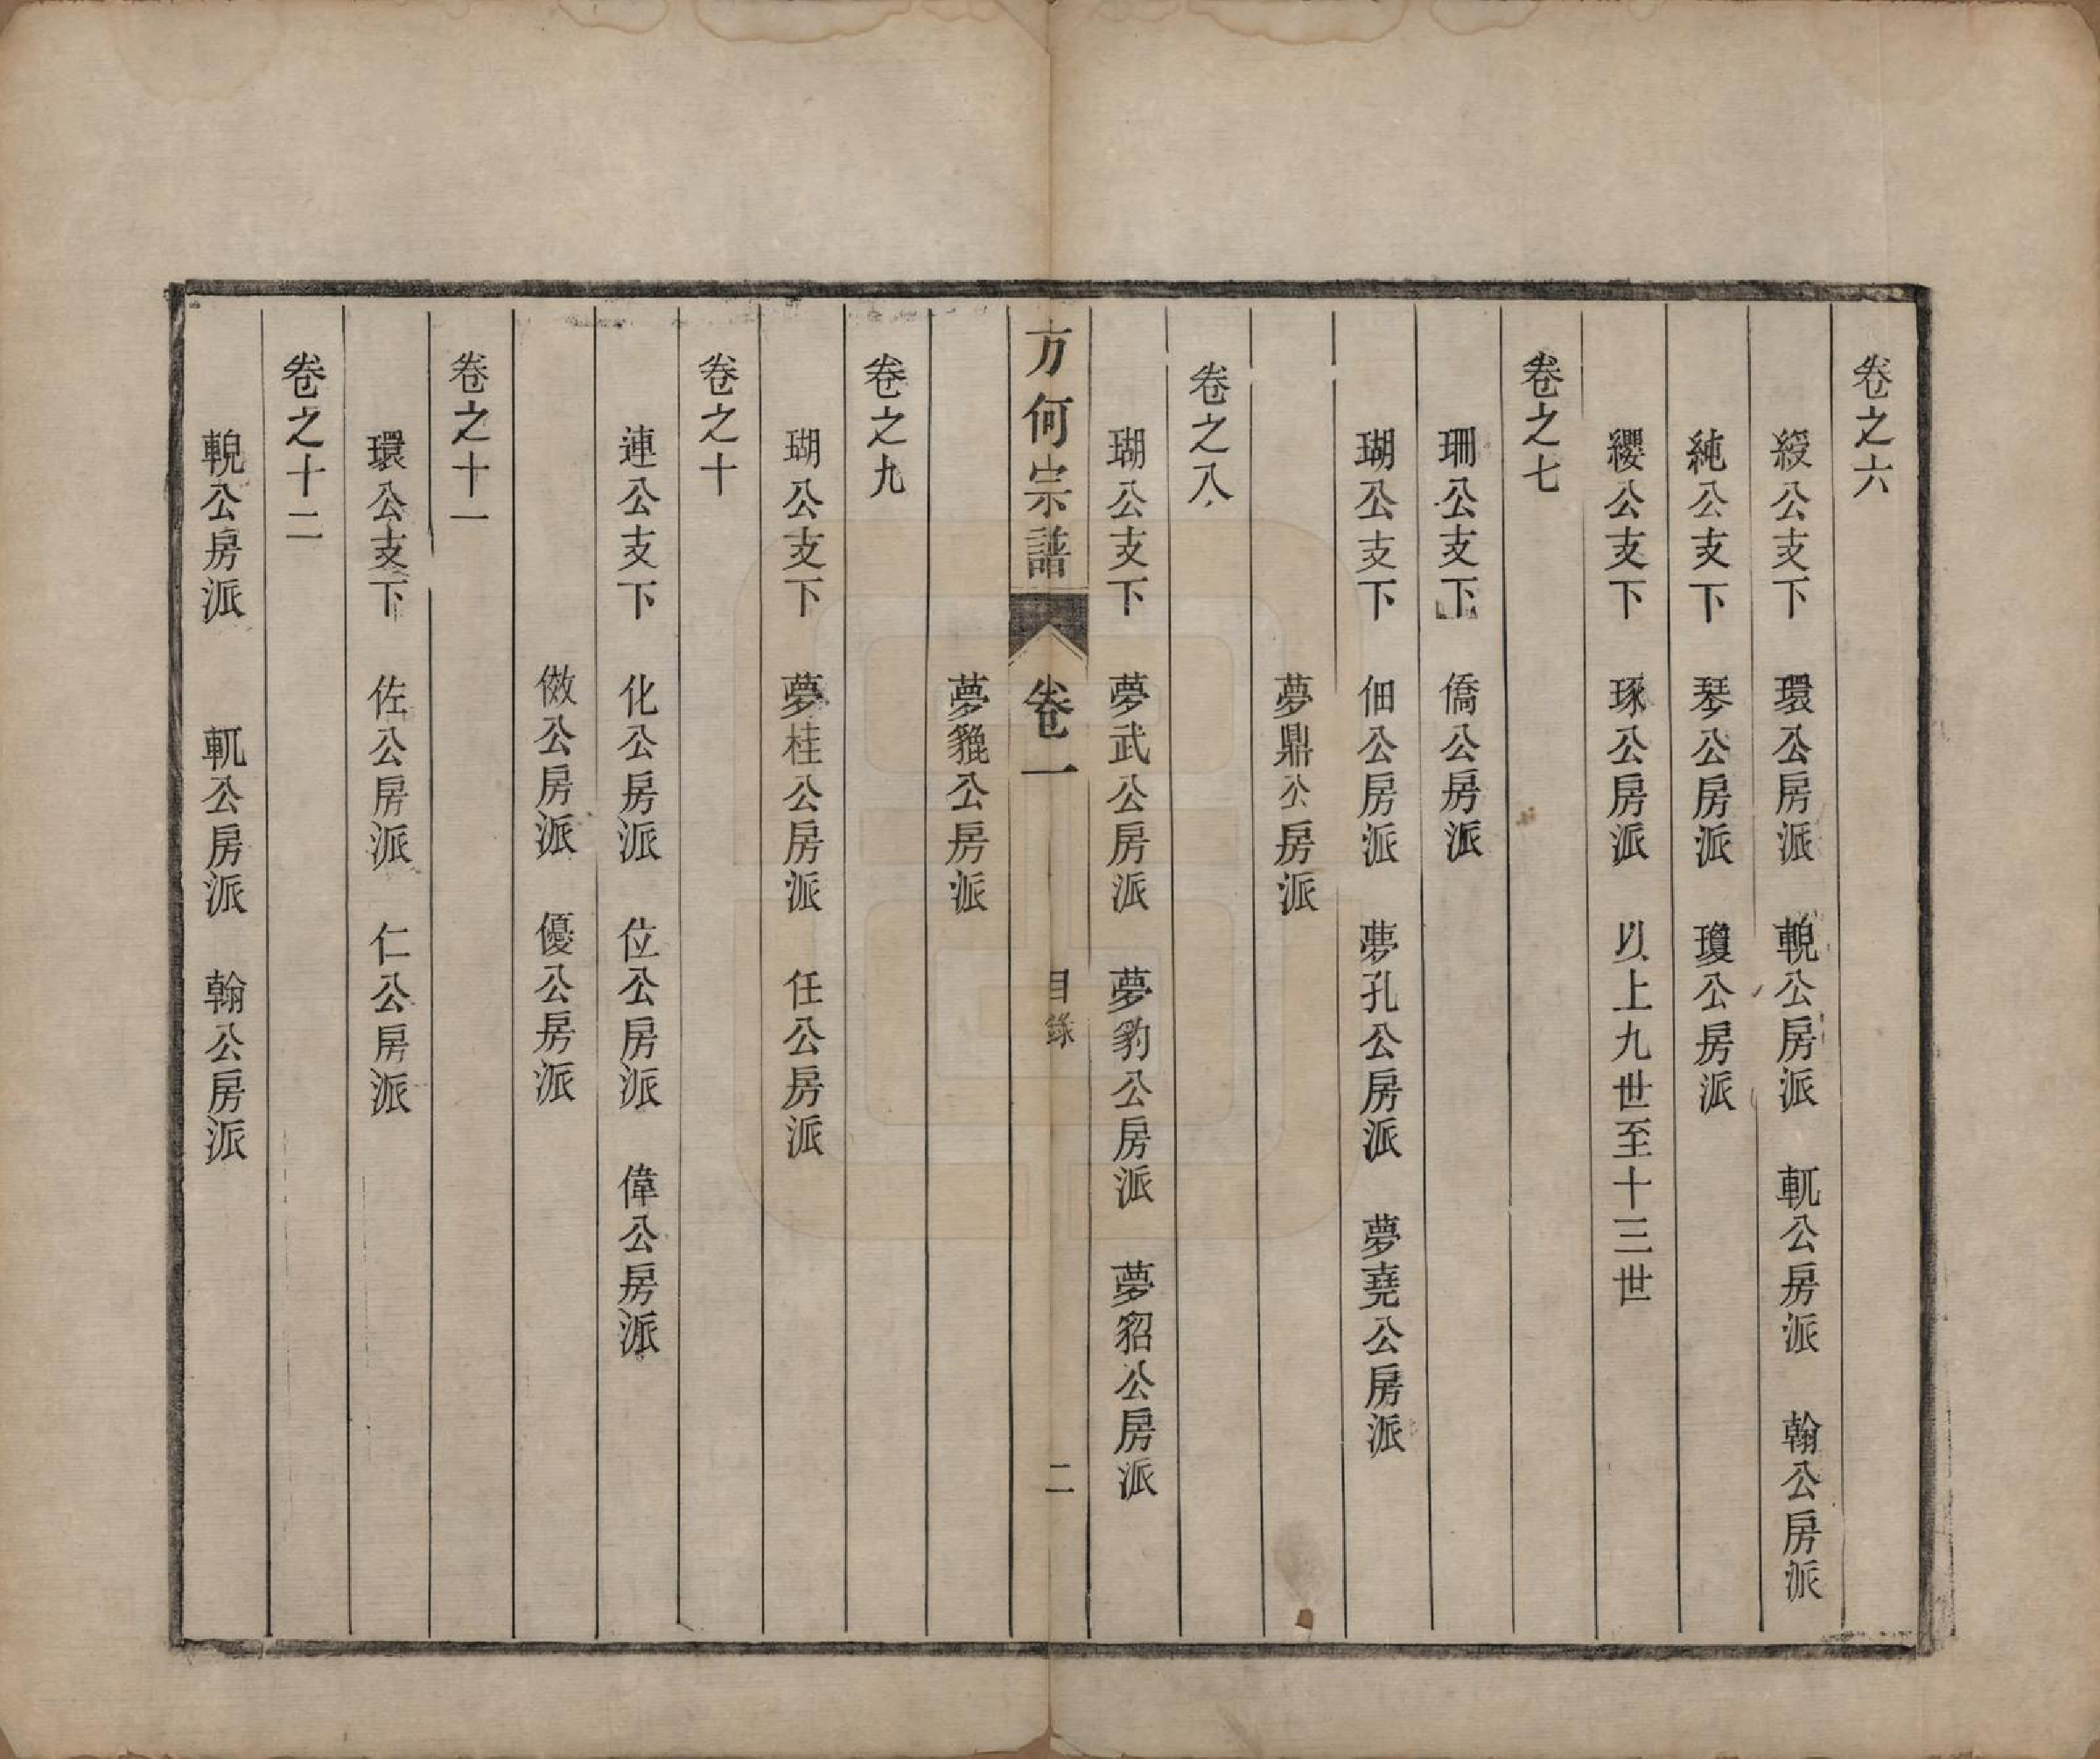 卷之六
綬公支下　環公房派　輗公房派　軏公房派　翰公房派
純公支下　琴公房派　瓊公房派
纓公支下　琢公房派　以上九世至十三世
卷之七
珊公支下　僑公房派
瑚公支下　佃公房派　夢孔公房派　夢堯公房派
夢鼎公房派
卷之八
瑚公支下　夢武公房派　夢豹公房派　夢貂公房派
方何宗譜　卷一　目錄　二
夢貔公房派
卷之九
瑚公支下　夢桂公房派　任公房派
卷之十
連公支下　化公房派　位公房派　偉公房派
傚公房派　優公房派
卷之十一
環公支下　佐公房派　仁公房派
卷之十二
輗公房派　軏公房派　翰公房派